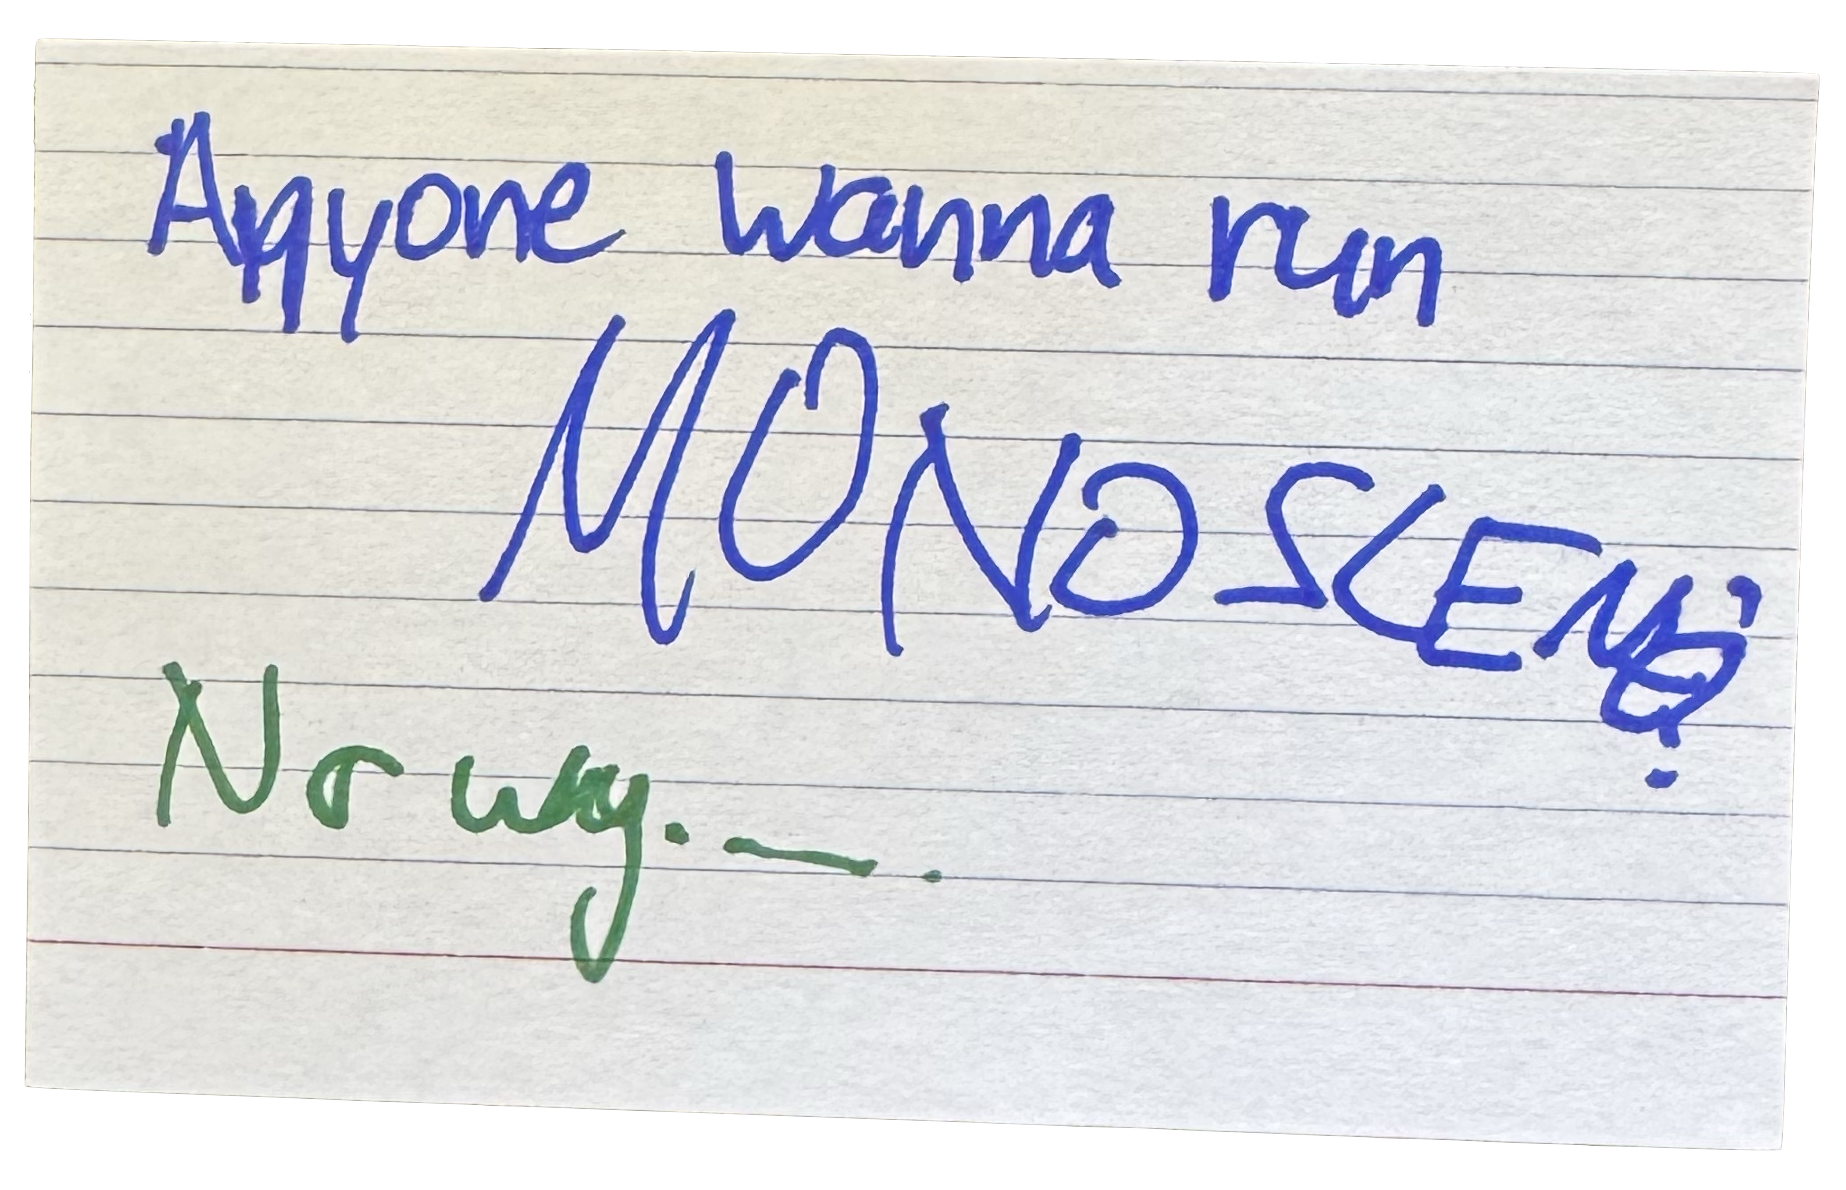 Anyone wanna run
MONOSLEMO?
No way. — .